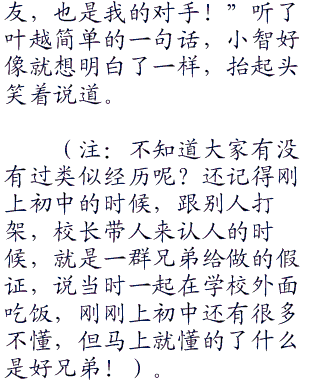 友，也是我的对手！”听了
叶越简单的一句话，小智好
像就想明白了一样，抬起头
笑着说道。
（注：不知道大家有没
有过类似经历呢？还记得刚
上初中的时候，跟别人打
架，校长带人来认人的时
候，就是一群兄弟给做的假
证，说当时一起在学校外面
吃饭，刚刚上初中还有很多
不懂，但马上就懂的了什么
是好兄弟！）。